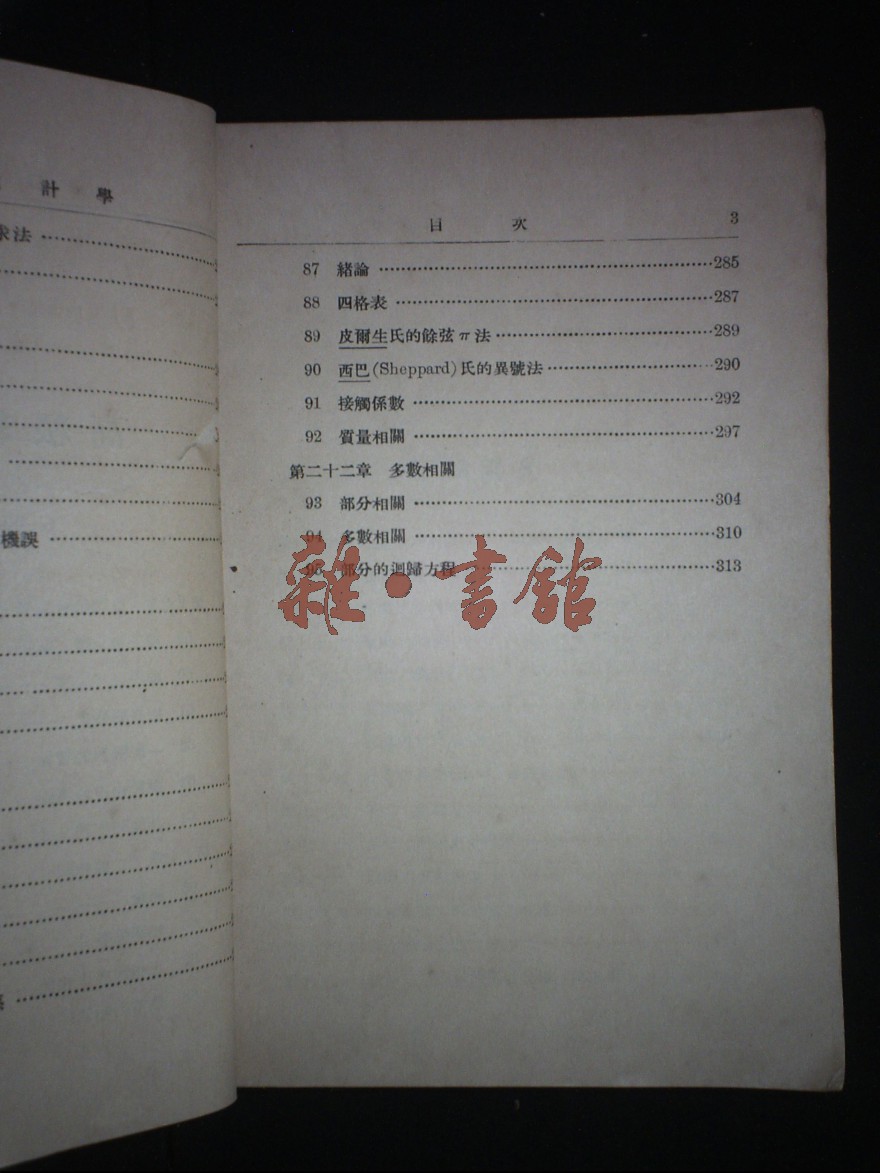 計學
求法
機誤
目次 3
87 緒論 285
88 四格表 287
89 皮爾生氏的餘弦π法 289
90 西巴(Sheppard)氏的異號法 290
91 接觸係數 292
92 質量相關 297
第二十二章 多數相關
93 部分相關 304
94 多數相關 310
95 部分的迴歸方程 313
雜·書館